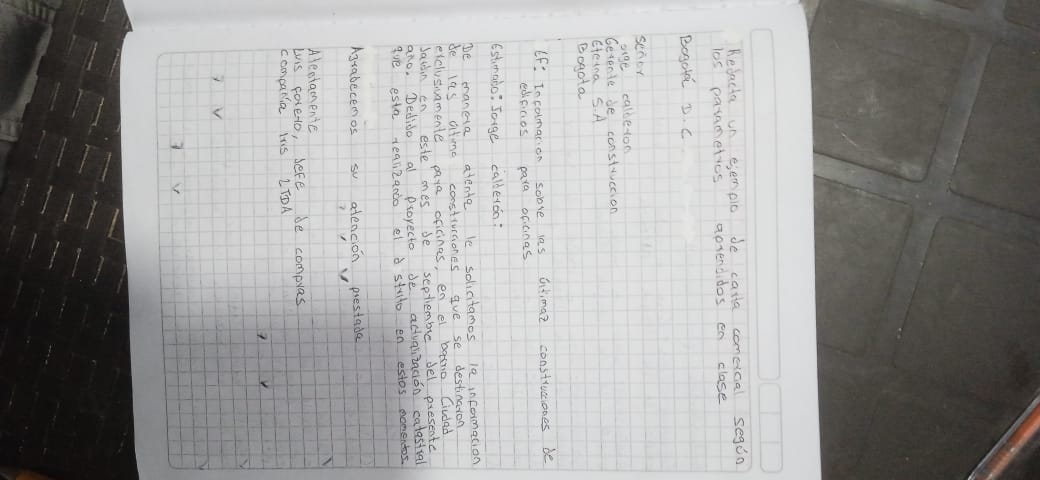 Redacta un ejemplo de carta comercial según
los parametros aprendidos en clase
Bogotá D.C.
señor
orge calderon
Gerente de construccion
Eterna S.A
Bogota
Ef: Informacion sobre las últimaz construcciones de
edificios para oficinas
Estimado: Jorge calderón:
De manera atenta le solicitamos la informacion
de las última construcciones que se destinaron
exclusivamente para oficinas, en el barrio Ciudad
Jardin en este mes de septiembre del presente
ano. Dedido al proyecto de actualización catastral
que esta realizando el d strito en estos momentos.
Agrabecemos su atención prestada
Atentamente
Luis forero, Jefe de compras
compañia Iris LTDA